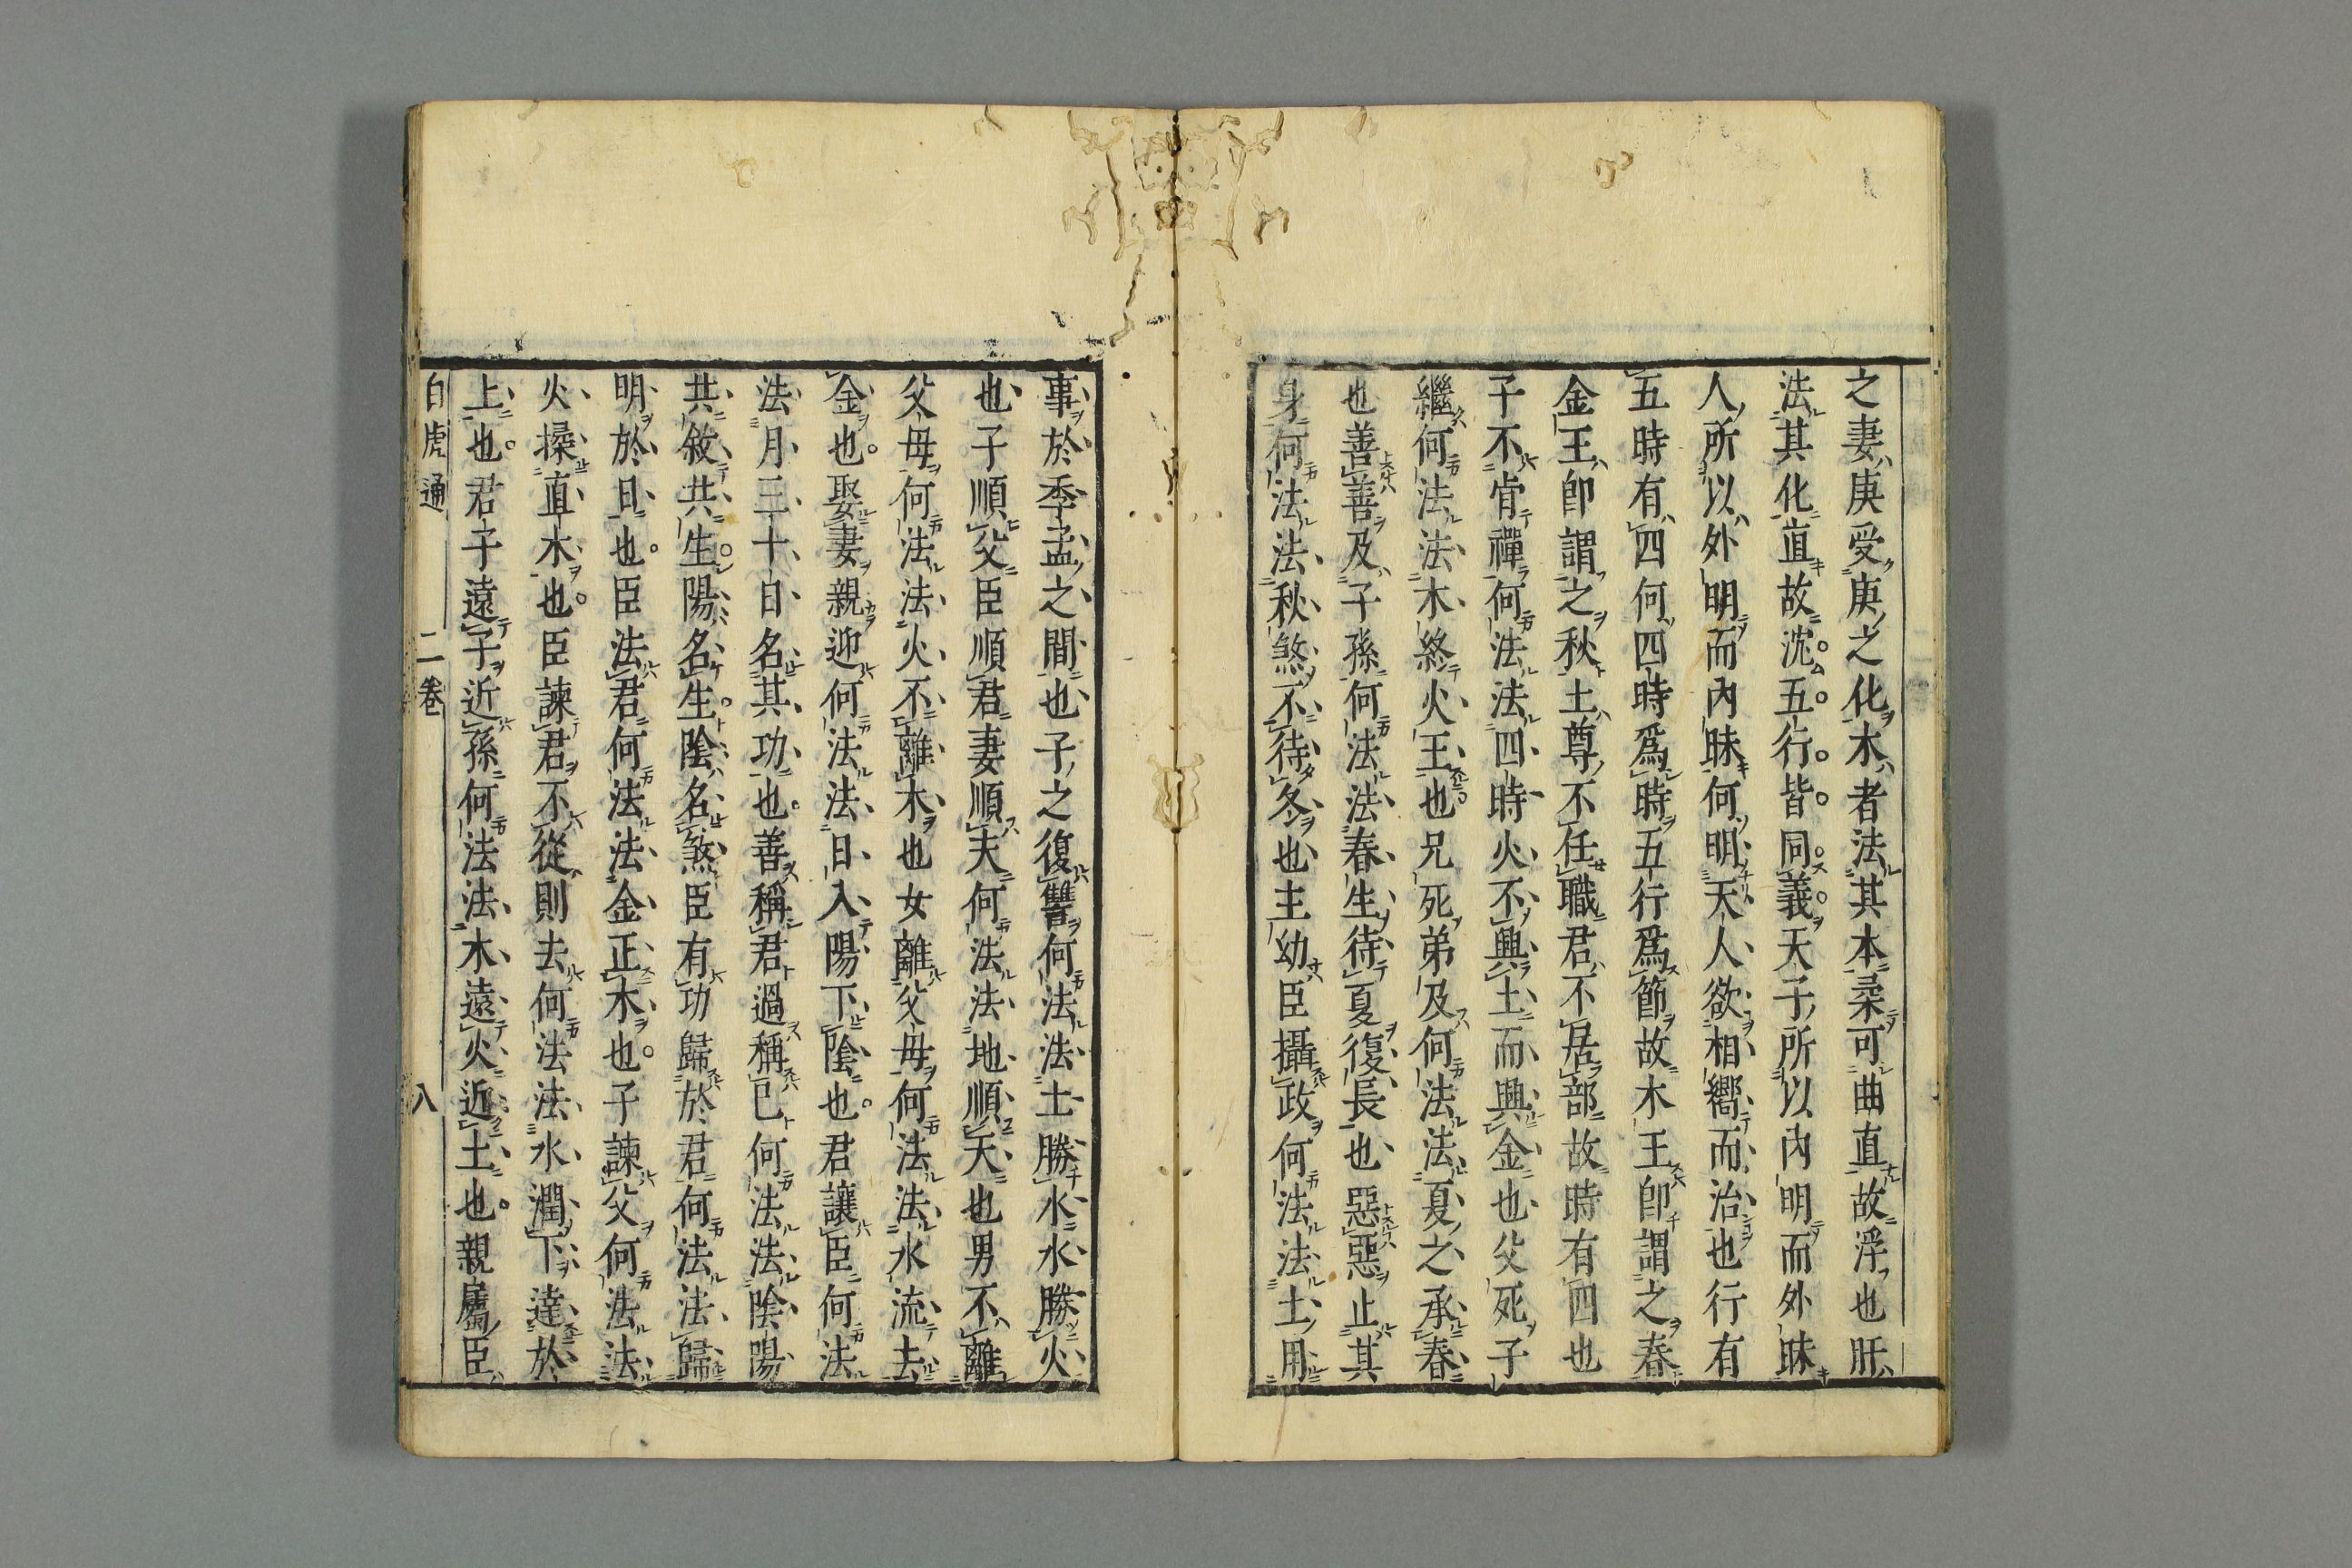 之妻庚受庚之化木者法其本柔可曲直故浮也肝
法其化直故沈五行皆同義天子所以內明而外昧
人所以外明而內昧何明天人欲相嚮而治也行有
五時有四何四時爲時五行爲節故木王卽謂之春
金王卽謂之秋土尊不任職君不居部故時有四也
子不肯禪何法法四時火不興土而興金也父死子
繼何法法木終火王也兄死弟及何法法夏之承春
也善善及子孫何法法春生待夏復長也惡惡止其
身何法法秋煞不待冬也主幼臣攝政何法法土用
事於季孟之間也子之復讐何法法土勝水水勝火
也子順父臣順君妻順夫何法法地順天也男不離
父母何法法火不離木也女離父母何法法水流去
金也娶妻親迎何法法日入陽下陰也君讓臣何法
法月三十日名其功也善稱君過稱已何法法陰陽
共敘共生陽名生陰名煞臣有功歸於君何法法歸
明於日也臣法君何法法金正木也子諫父何法法
火揉直木也臣諫君不從則去何法法水潤下達於
上也君子遠子近孫何法法木遠火近土也親屬臣
白虎通 二卷 八